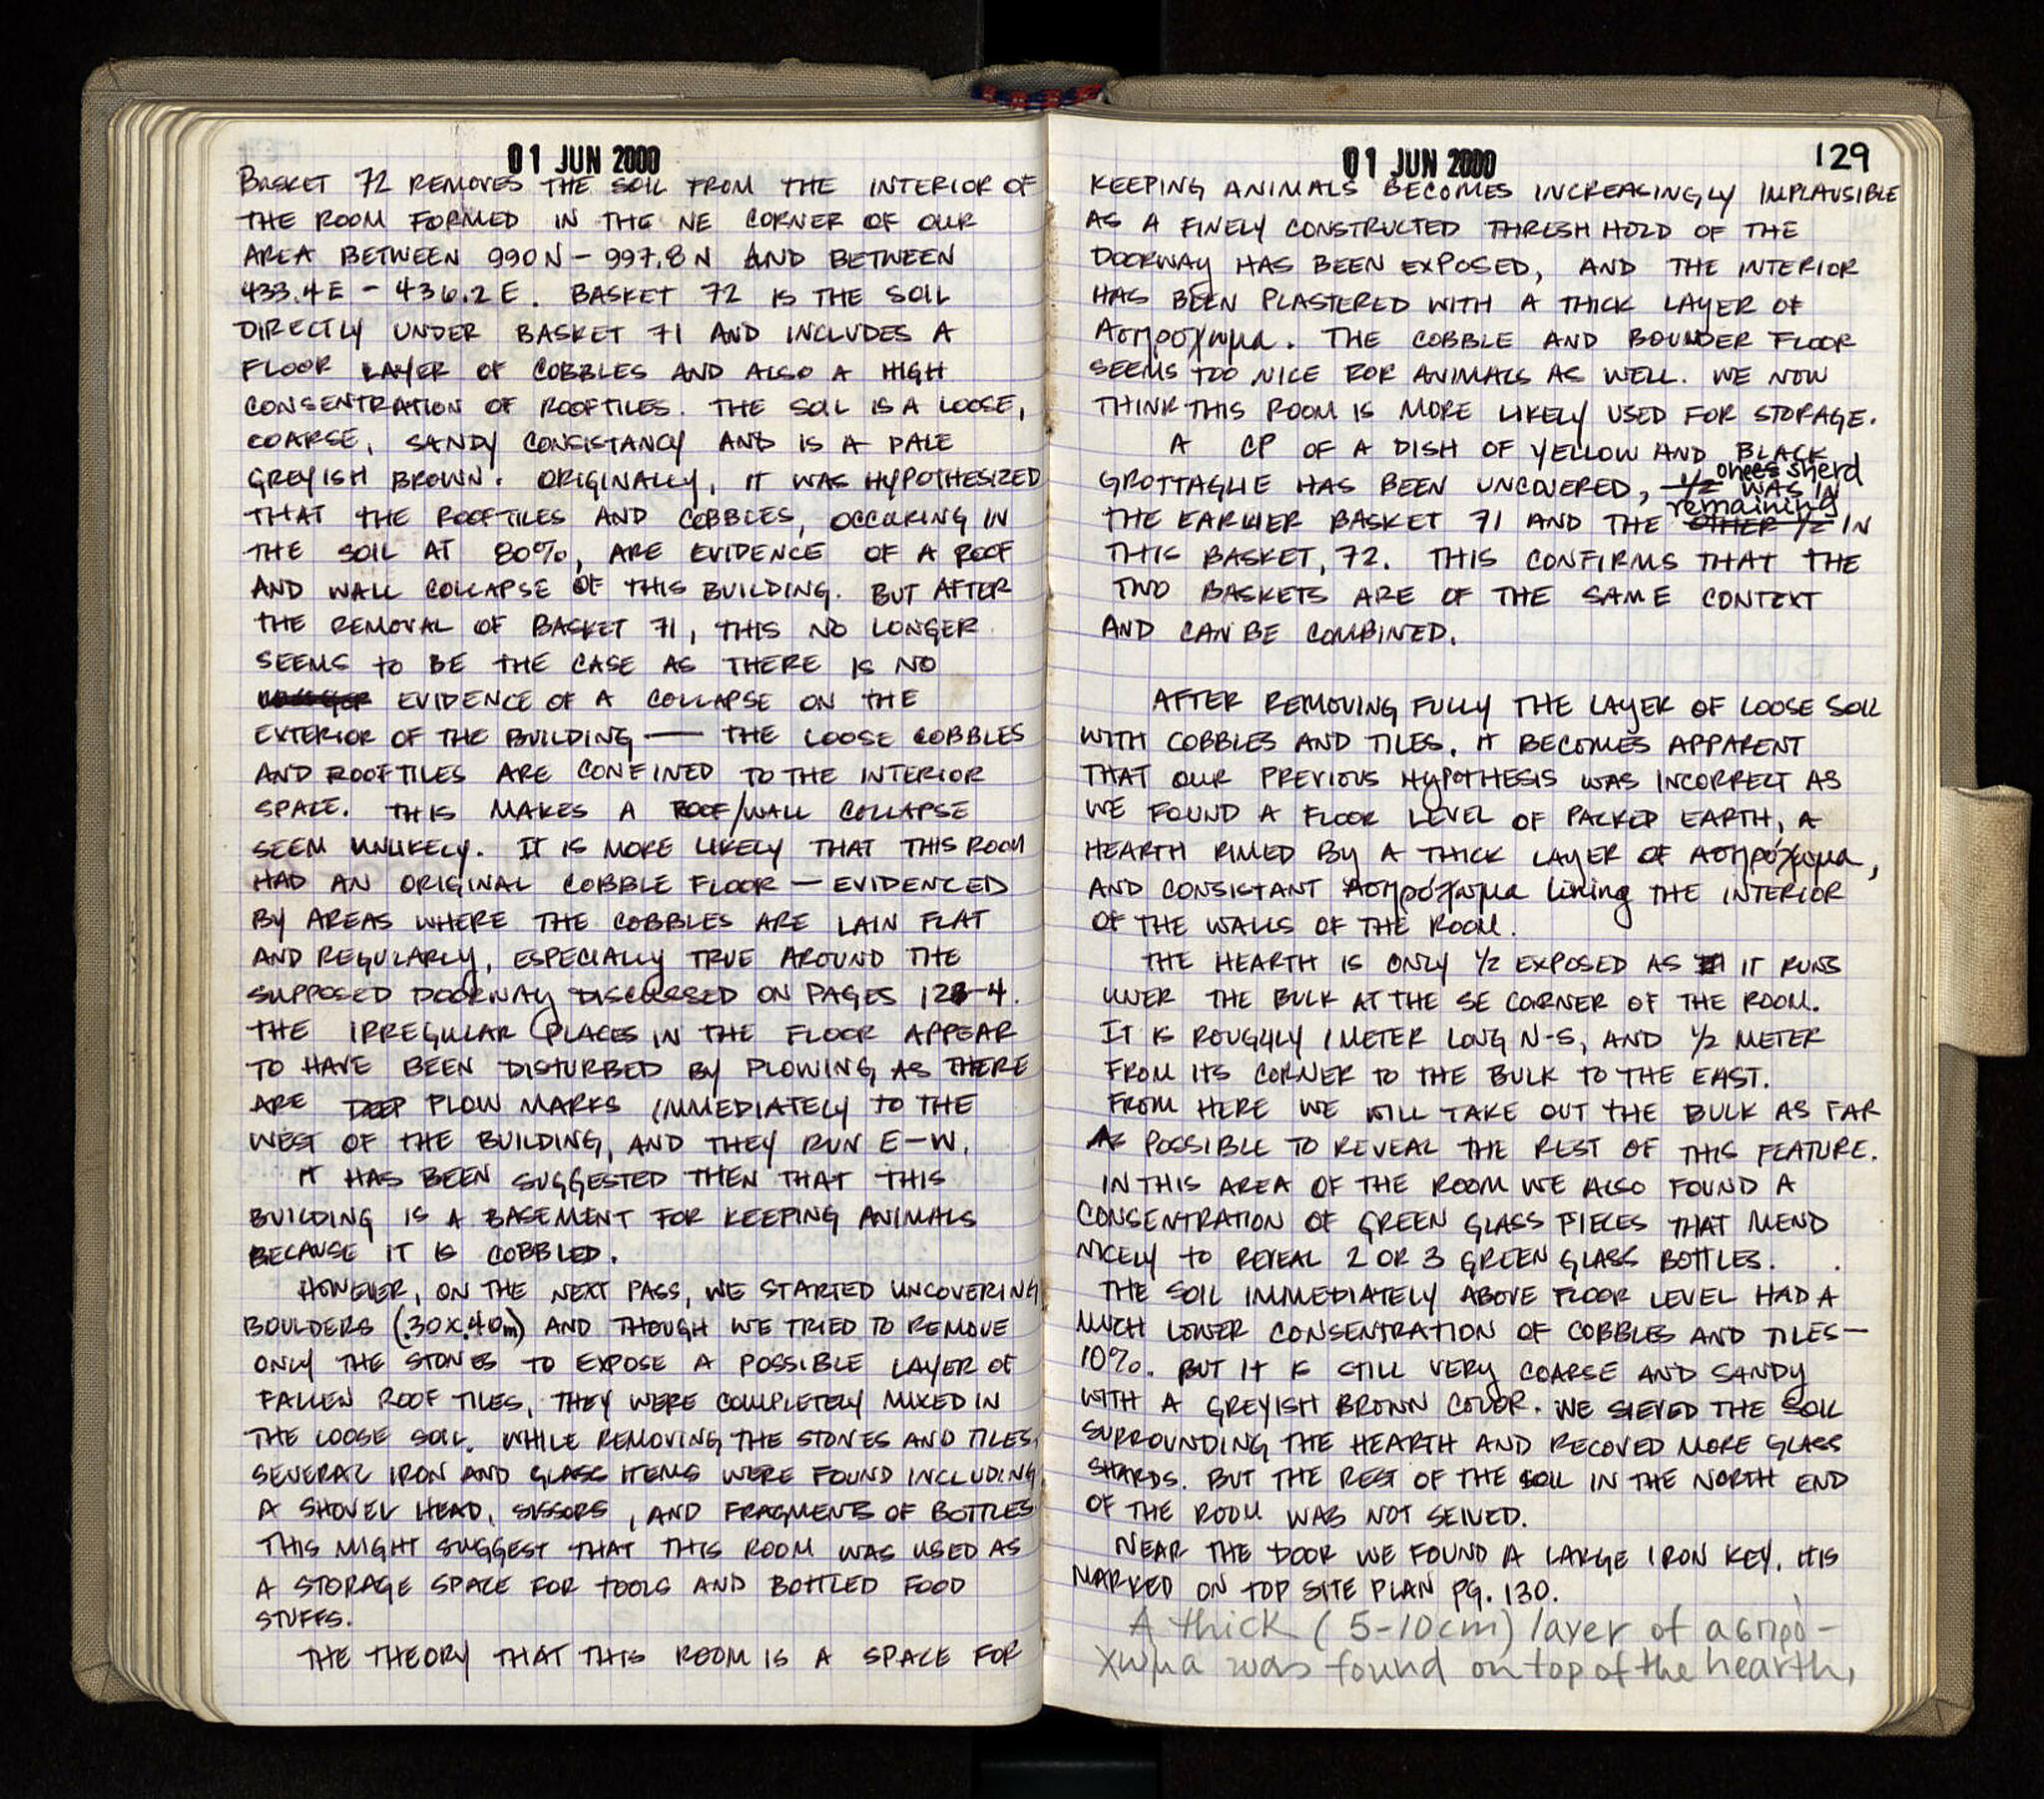 01 JUN 2000
BASKET 72 REMOVES THE SOIL FROM THE INTERIOR OF
THE ROOM FORMED IN THE NE CORNER OF OUR
AREA BETWEEN 990N - 997.8N AND BETWEEN
433.4E - 436.2E. BASKET 72 IS THE SOIL
DIRECTLY UNDER BASKET 71 AND INCLUDES A
FLOOR LAYER OF COBBLES AND ALSO A HIGH
CONSENTRATION OF ROOFTILES. THE SOIL IS A LOOSE,
COARSE, SANDY CONSISTANCY AND IS A PALE
GREYISH BROWN. ORIGINALLY, IT WAS HYPOTHESIZED
THAT THE ROOFTILES AND COBBLES, OCCURING IN
THE SOIL AT 80%, ARE EVIDENCE OF A ROOF
AND WALL COLLAPSE OF THIS BUILDING. BUT AFTER
THE REMOVAL OF BASKET 71, THIS NO LONGER
SEEMS TO BE THE CASE AS THERE IS NO
EVIDENCE OF A COLLAPSE ON THE
EXTERIOR OF THE BUILDING — THE LOOSE COBBLES
AND ROOFTILES ARE CONFINED TO THE INTERIOR
SPACE. THIS MAKES A ROOF/WALL COLLAPSE
SEEM UNLIKELY. IT IS MORE LIKELY THAT THIS ROOM
HAD AN ORIGINAL COBBLE FLOOR — EVIDENCED
BY AREAS WHERE THE COBBLES ARE LAIN FLAT
AND REGULARLY, ESPECIALLY TRUE AROUND THE
SUPPOSED DOORWAY DISCUSSED ON PAGES 123-4.
THE IRREGULAR PLACES IN THE FLOOR APPEAR
TO HAVE BEEN DISTURBED BY PLOWING, AS THERE
ARE DEEP PLOW MARKS IMMEDIATELY TO THE
WEST OF THE BUILDING, AND THEY RUN E-W.
IT HAS BEEN SUGGESTED THEN THAT THIS
BUILDING IS A BASEMENT FOR KEEPING ANIMALS
BECAUSE IT IS COBBLED.
HOWEVER, ON THE NEXT PASS, WE STARTED UNCOVERING
BOULDERS (.30X.40m) AND THOUGH WE TRIED TO REMOVE
ONLY THE STONES TO EXPOSE A POSSIBLE LAYER OF
FALLEN ROOF TILES, THEY WERE COMPLETELY MIXED IN
THE LOOSE SOIL. WHILE REMOVING THE STONES AND TILES,
SEVERAL IRON AND GLASS ITEMS WERE FOUND INCLUDING
A SHOVEL HEAD, SISSORS, AND FRAGMENTS OF BOTTLES
THIS MIGHT SUGGEST THAT THIS ROOM WAS USED AS
A STORAGE SPACE FOR TOOLS AND BOTTLED FOOD
STUFFS.
THE THEORY THAT THIS ROOM IS A SPACE FOR
01 JUN 2000
129
KEEPING ANIMALS BECOMES INCREASINGLY IMPLAUSIBLE
AS A FINELY CONSTRUCTED THRESHHOLD OF THE
DOORWAY HAS BEEN EXPOSED, AND THE INTERIOR
HAS BEEN PLASTERED WITH A THICK LAYER OF
Ασπρόχωμα. THE COBBLE AND BOUNDER FLOOR
SEEMS TOO NICE FOR ANIMALS AS WELL. WE NOW
THINK THIS ROOM IS MORE LIKELY USED FOR STORAGE.
A CP OF A DISH OF YELLOW AND BLACK
onees sherd
GROTTAGLIE HAS BEEN UNCOVERED, 1/2 WAS IN
remaining
THE EARLIER BASKET 71 AND THE OTHER 1/2 IN
THIS BASKET, 72. THIS CONFIRMS THAT THE
TWO BASKETS ARE OF THE SAME CONTEXT
AND CAN BE COMBINED.
AFTER REMOVING FULLY THE LAYER OF LOOSE SOIL
WITH COBBLES AND TILES, IT BECOMES APPARENT
THAT OUR PREVIOUS HYPOTHESIS WAS INCORRECT AS
WE FOUND A FLOOR LEVEL OF PACKED EARTH, A
HEARTH RIMED BY A THICK LAYER OF Ασπρόχωμα,
AND CONSISTANT Ασπρόχωμα lining THE INTERIOR
OF THE WALLS OF THE ROOM.
THE HEARTH IS ONLY 1/2 EXPOSED AS IT RUNS
UNER THE BULK AT THE SE CORNER OF THE ROOM.
IT IS ROUGHLY 1 METER LONG N-S, AND 1/2 METER
FROM ITS CORNER TO THE BULK TO THE EAST.
FROM HERE WE WILL TAKE OUT THE BULK AS FAR
AS POSSIBLE TO REVEAL THE REST OF THIS FEATURE.
IN THIS AREA OF THE ROOM WE ALSO FOUND A
CONSENTRATION OF GREEN GLASS PIECES THAT MEND
NICELY TO REVEAL 2 OR 3 GREEN GLASS BOTTLES.
THE SOIL IMMEDIATELY ABOVE FLOOR LEVEL HAD A
MUCH LOWER CONSENTRATION OF COBBLES AND TILES—
10%. BUT IT IS STILL VERY COARSE AND SANDY
WITH A GREYISH BROWN COLOR. WE SIEVED THE SOIL
SURROUNDING THE HEARTH AND RECOVED MORE GLASS
SHARDS. BUT THE REST OF THE SOIL IN THE NORTH END
OF THE ROOM WAS NOT SEIVED.
NEAR THE DOOR WE FOUND A LARGE IRON KEY. IT IS
MARKED ON TOP SITE PLAN PG. 130.
A thick (5-10cm) layer of ασπρό-
χωμα was found on top of the hearth,